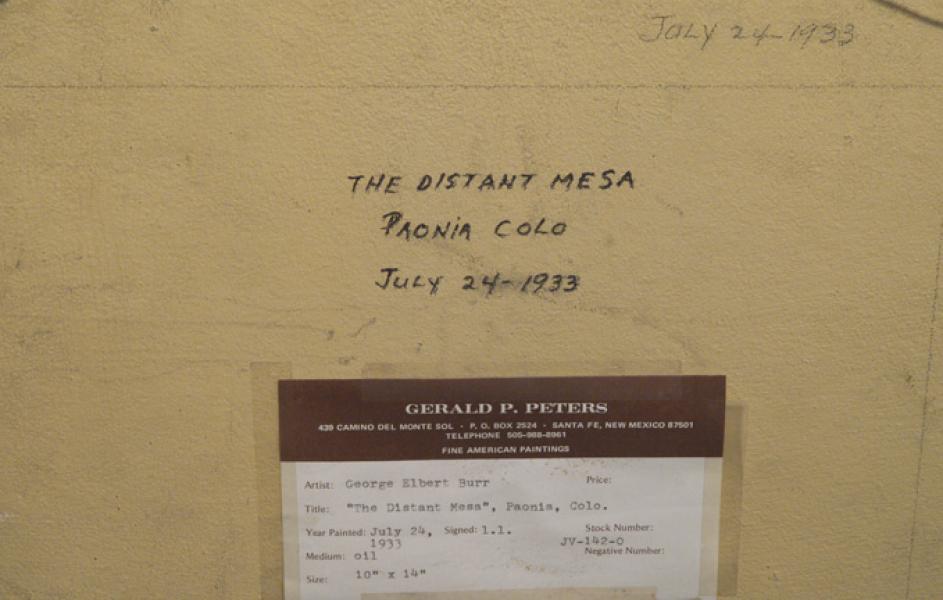 JULY 24-1933
THE DISTANT MESA
PAONIA COLO
JULY 24-1933
GERALD P. PETERS
439 CAMINO DEL MONTE SOL · P. O. BOX 2524 · SANTA FE, NEW MEXICO 87501
TELEPHONE 505-988-8961
FINE AMERICAN PAINTINGS
Artist: George Elbert Burr Price:
Title: "The Distant Mesa", Paonia, Colo.
Year Painted: July 24, Signed: l.l. Stock Number:
1933 JV-142-O
Negative Number:
Medium: oil
Size: 10" x 14"